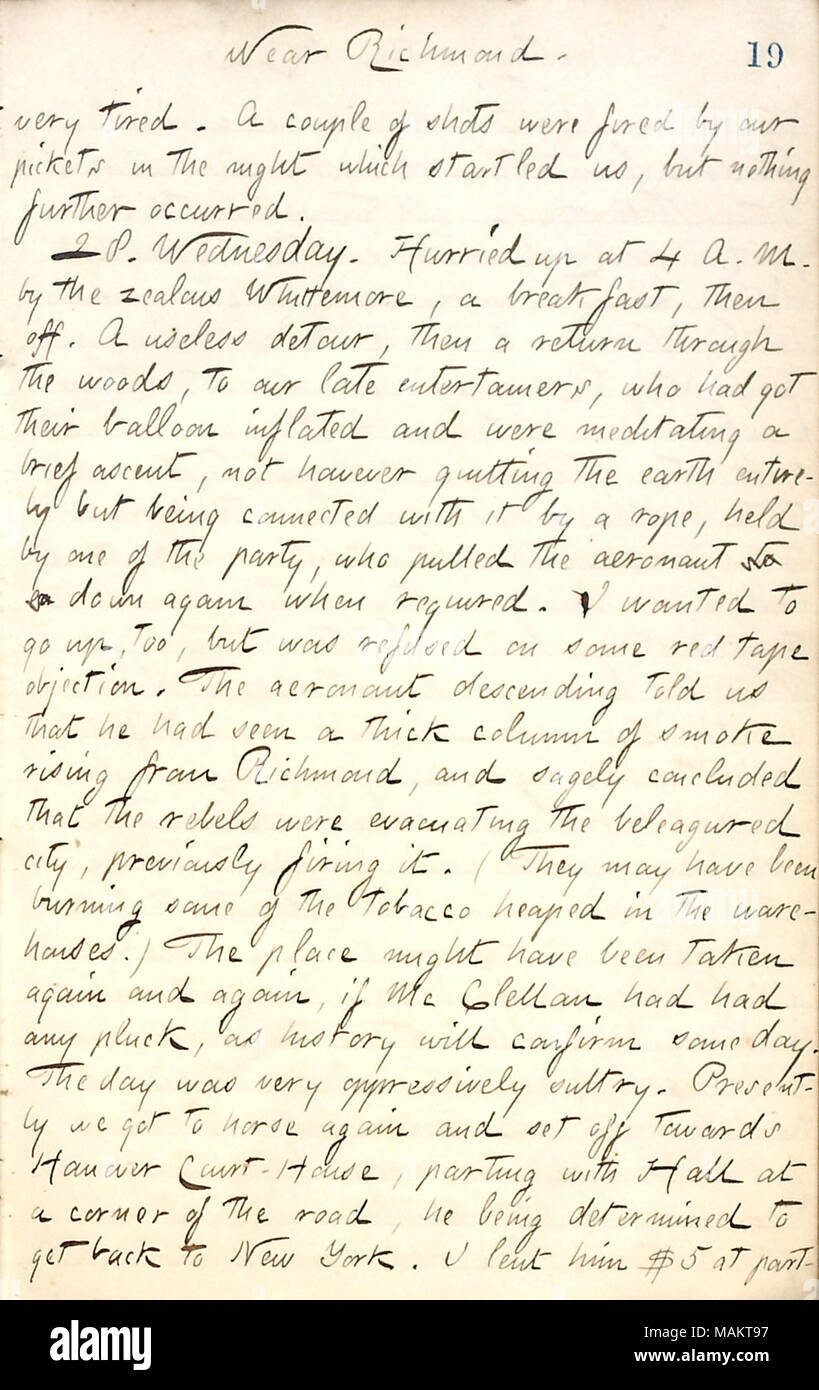 Near Richmond.
19
very tired. A couple of shots were fired by our
pickets in the night which startled us, but nothing
further occurred.
28. Wednesday. Hurried up at 4 A.M.
by the zealous Whittemore, a breakfast, then
off. A useless detour, then a return through
the woods, to our late entertainers, who had got
their balloon inflated and were meditating a
brief ascent, not however quitting the earth entire-
ly but being connected with it by a rope, held
by one of the party, who pulled the aeronaut
down again when required. I wanted to
go up, too, but was refused on some red tape
objection. The aeronaut descending told us
that he had seen a thick column of smoke
rising from Richmond, and sagely concluded
that the rebels were evacuating the beleagured
city, previously firing it. (They may have been
burning some of the tobacco heaped in the ware-
houses.) The place might have been taken
again and again, if Mc Clellan had had
any pluck, as history will confirm some day.
The day was very oppressively sultry. Present-
ly we got to horse again and set off towards
Hanover Court-House, parting with Hall at
a corner of the road, he being determined to
get back to New York. I lent him $5 at part-
alamy
Image ID: MAKT97
www.alamy.com